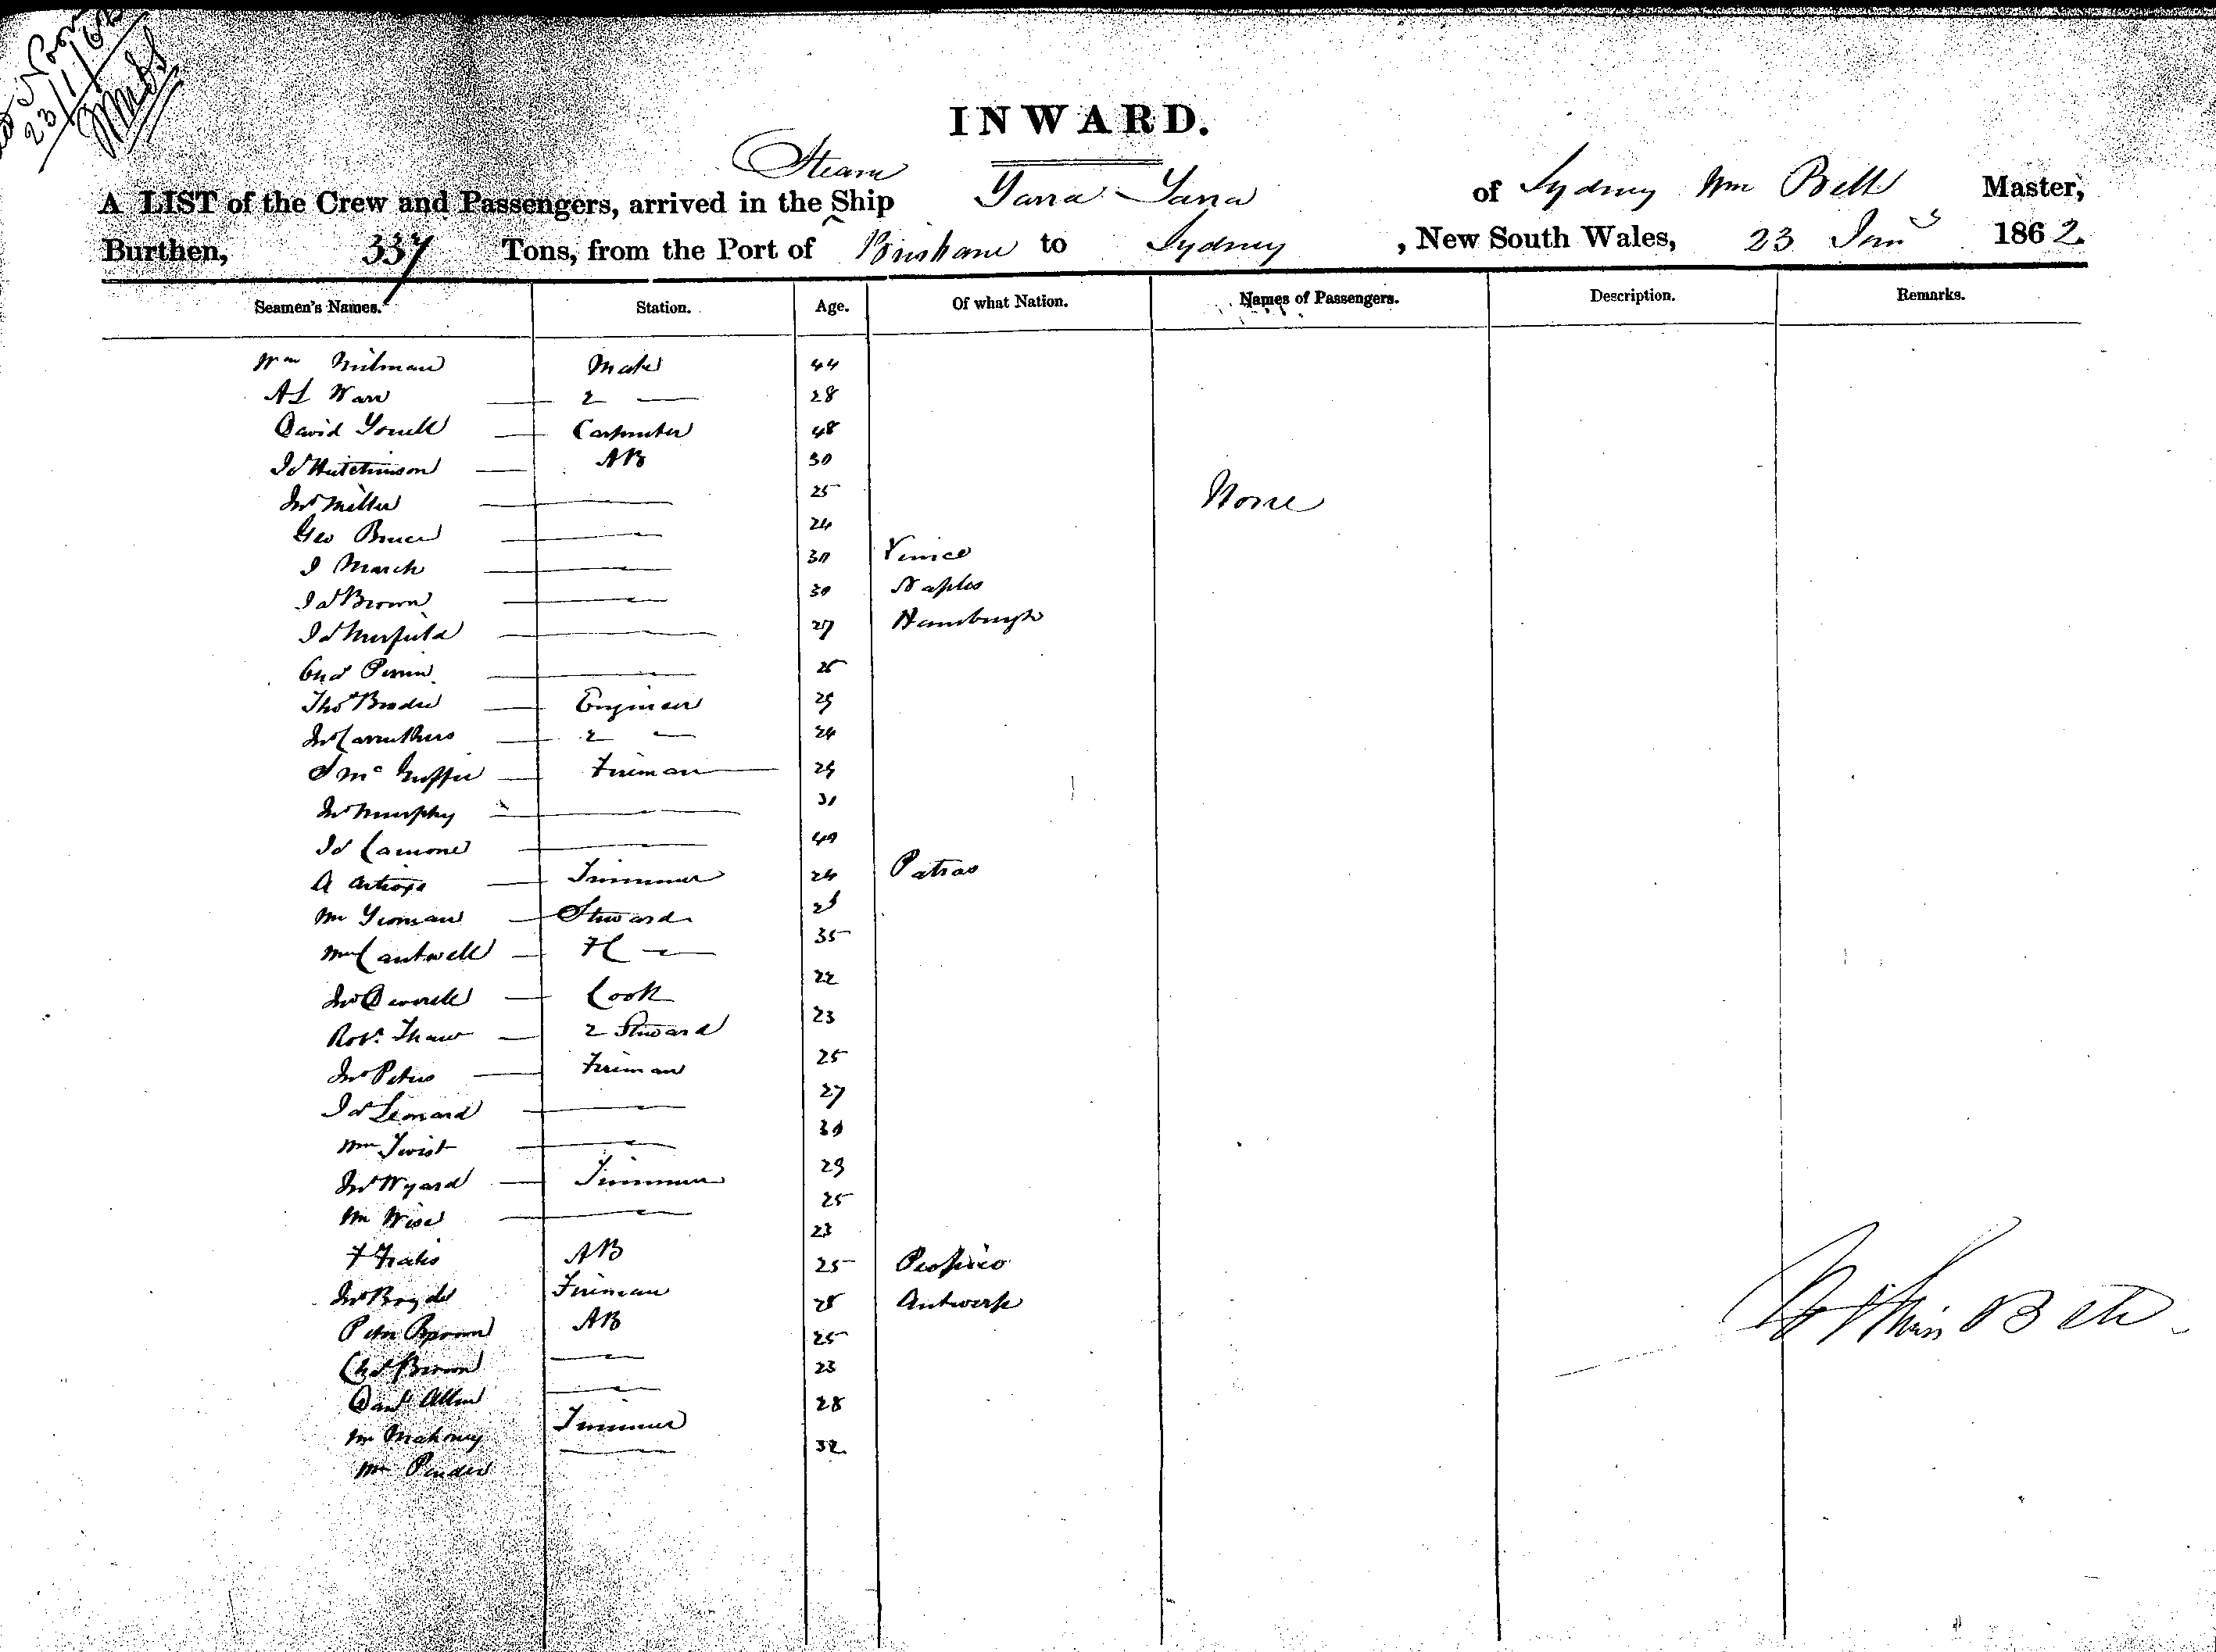 23/1/62
INWARD.
Steam
A LIST of the Crew and Passengers, arrived in the Ship Yarra Yarra of Sydney Wm Bell Master,
Burthen, 337 Tons, from the Port of Brisbane to Sydney, New South Wales, 23 Jany 1862.
Seamen's Names. Station. Age. Of what Nation. Names of Passengers. Description. Remarks.
Wm Milman Mate 44
A L Warr — 2 — 28
David Youell — Carpenter 48
Js Hutchinson — AB 30
Jno Miller — 25
None
Geo Bruce — 24
J March — 30 Venice
Js Brown — 30 Naples
Js Merfield — 27 Hamburgh
Chas Perrin — 25
Thos Brodie — Engineer 29
Jno Carruthers — 2 — 24
J Mc Guffie — Fireman 29
Jno Murphy — 31
Js Lamond — 40
A — Trimmer 24 Patras
Wm Yeoman — Steward
Wm Cantwell — 35
Jno — Cook 22
Robt. Thaw — 2 Steward 23
Jno Peters — Fireman 25
Js Leonard — 27
Wm Twist — 30
Jno Wyard — Trimmer 29
Wm Wise — 25
F AB 23
Jno Boyde Fireman 25
Peter Brown AB 28 Antwerp
Chas Brown — 25
Danl Allen — 23
Wm Mahoney Trimmer 28
Wm Pender — 32